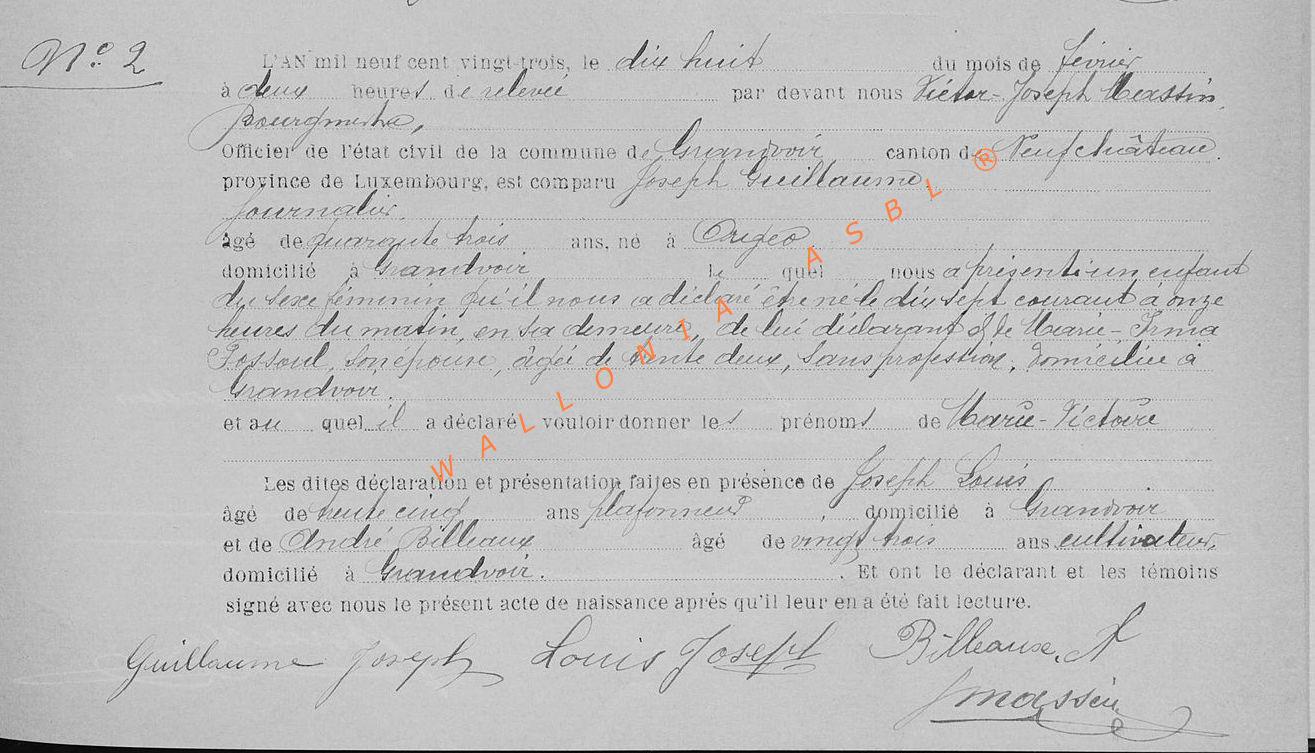 Nº 2
L'AN mil neuf cent vingt-trois, le dix huit du mois de février
à deux heures de relevée par devant nous Victor-Joseph Massin,
Bourgmestre,
Officier de l'état civil de la commune de Grandvoir canton de Neufchâteau.
province de Luxembourg, est comparu Joseph Guillaume,
journalier,
âgé de quarante trois ans, né à Orgeo
domicilié à Grandvoir lequel nous a présenté un enfant
du sexe féminin qu'il nous a déclaré être né le dix sept courant à onze
heures du matin, en sa demeure, de lui déclarant & de Marie-Irma
Fossoul, son épouse, âgée de trente deux, sans profession, domiciliée à
Grandvoir.
et auquel il a déclaré vouloir donner les prénoms de Marie-Victoire
Les dites déclaration et présentation faites en présence de Joseph Louis
âgé de trente cinq ans plafonneur, domicilié à Grandvoir
et de André Billeaux âgé de vingt trois ans cultivateur,
domicilié à Grandvoir. Et ont le déclarant et les témoins
signé avec nous le présent acte de naissance après qu'il leur en a été fait lecture.
Guillaume Joseph Louis Joseph Billeaux, A
Jmassin
WALLONIA ASBL ®